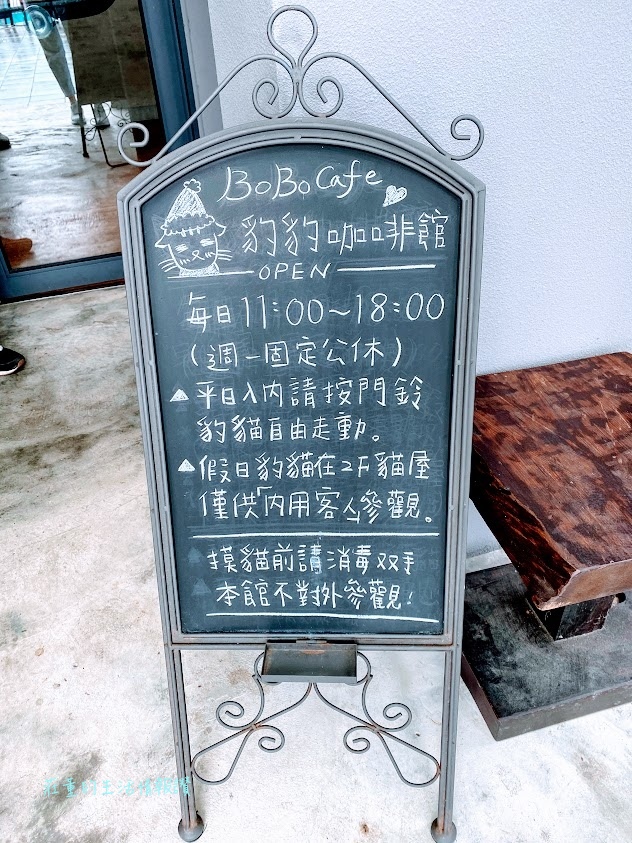 BoBo Cafe
豹豹咖啡館
OPEN
每日11:00~18:00
(週一固定公休)
平日入內請按門鈴
豹貓自由走動。
假日豹貓在2F貓屋
僅供「內用客人」參觀。
摸貓前請消毒双手
本館不對外參觀!